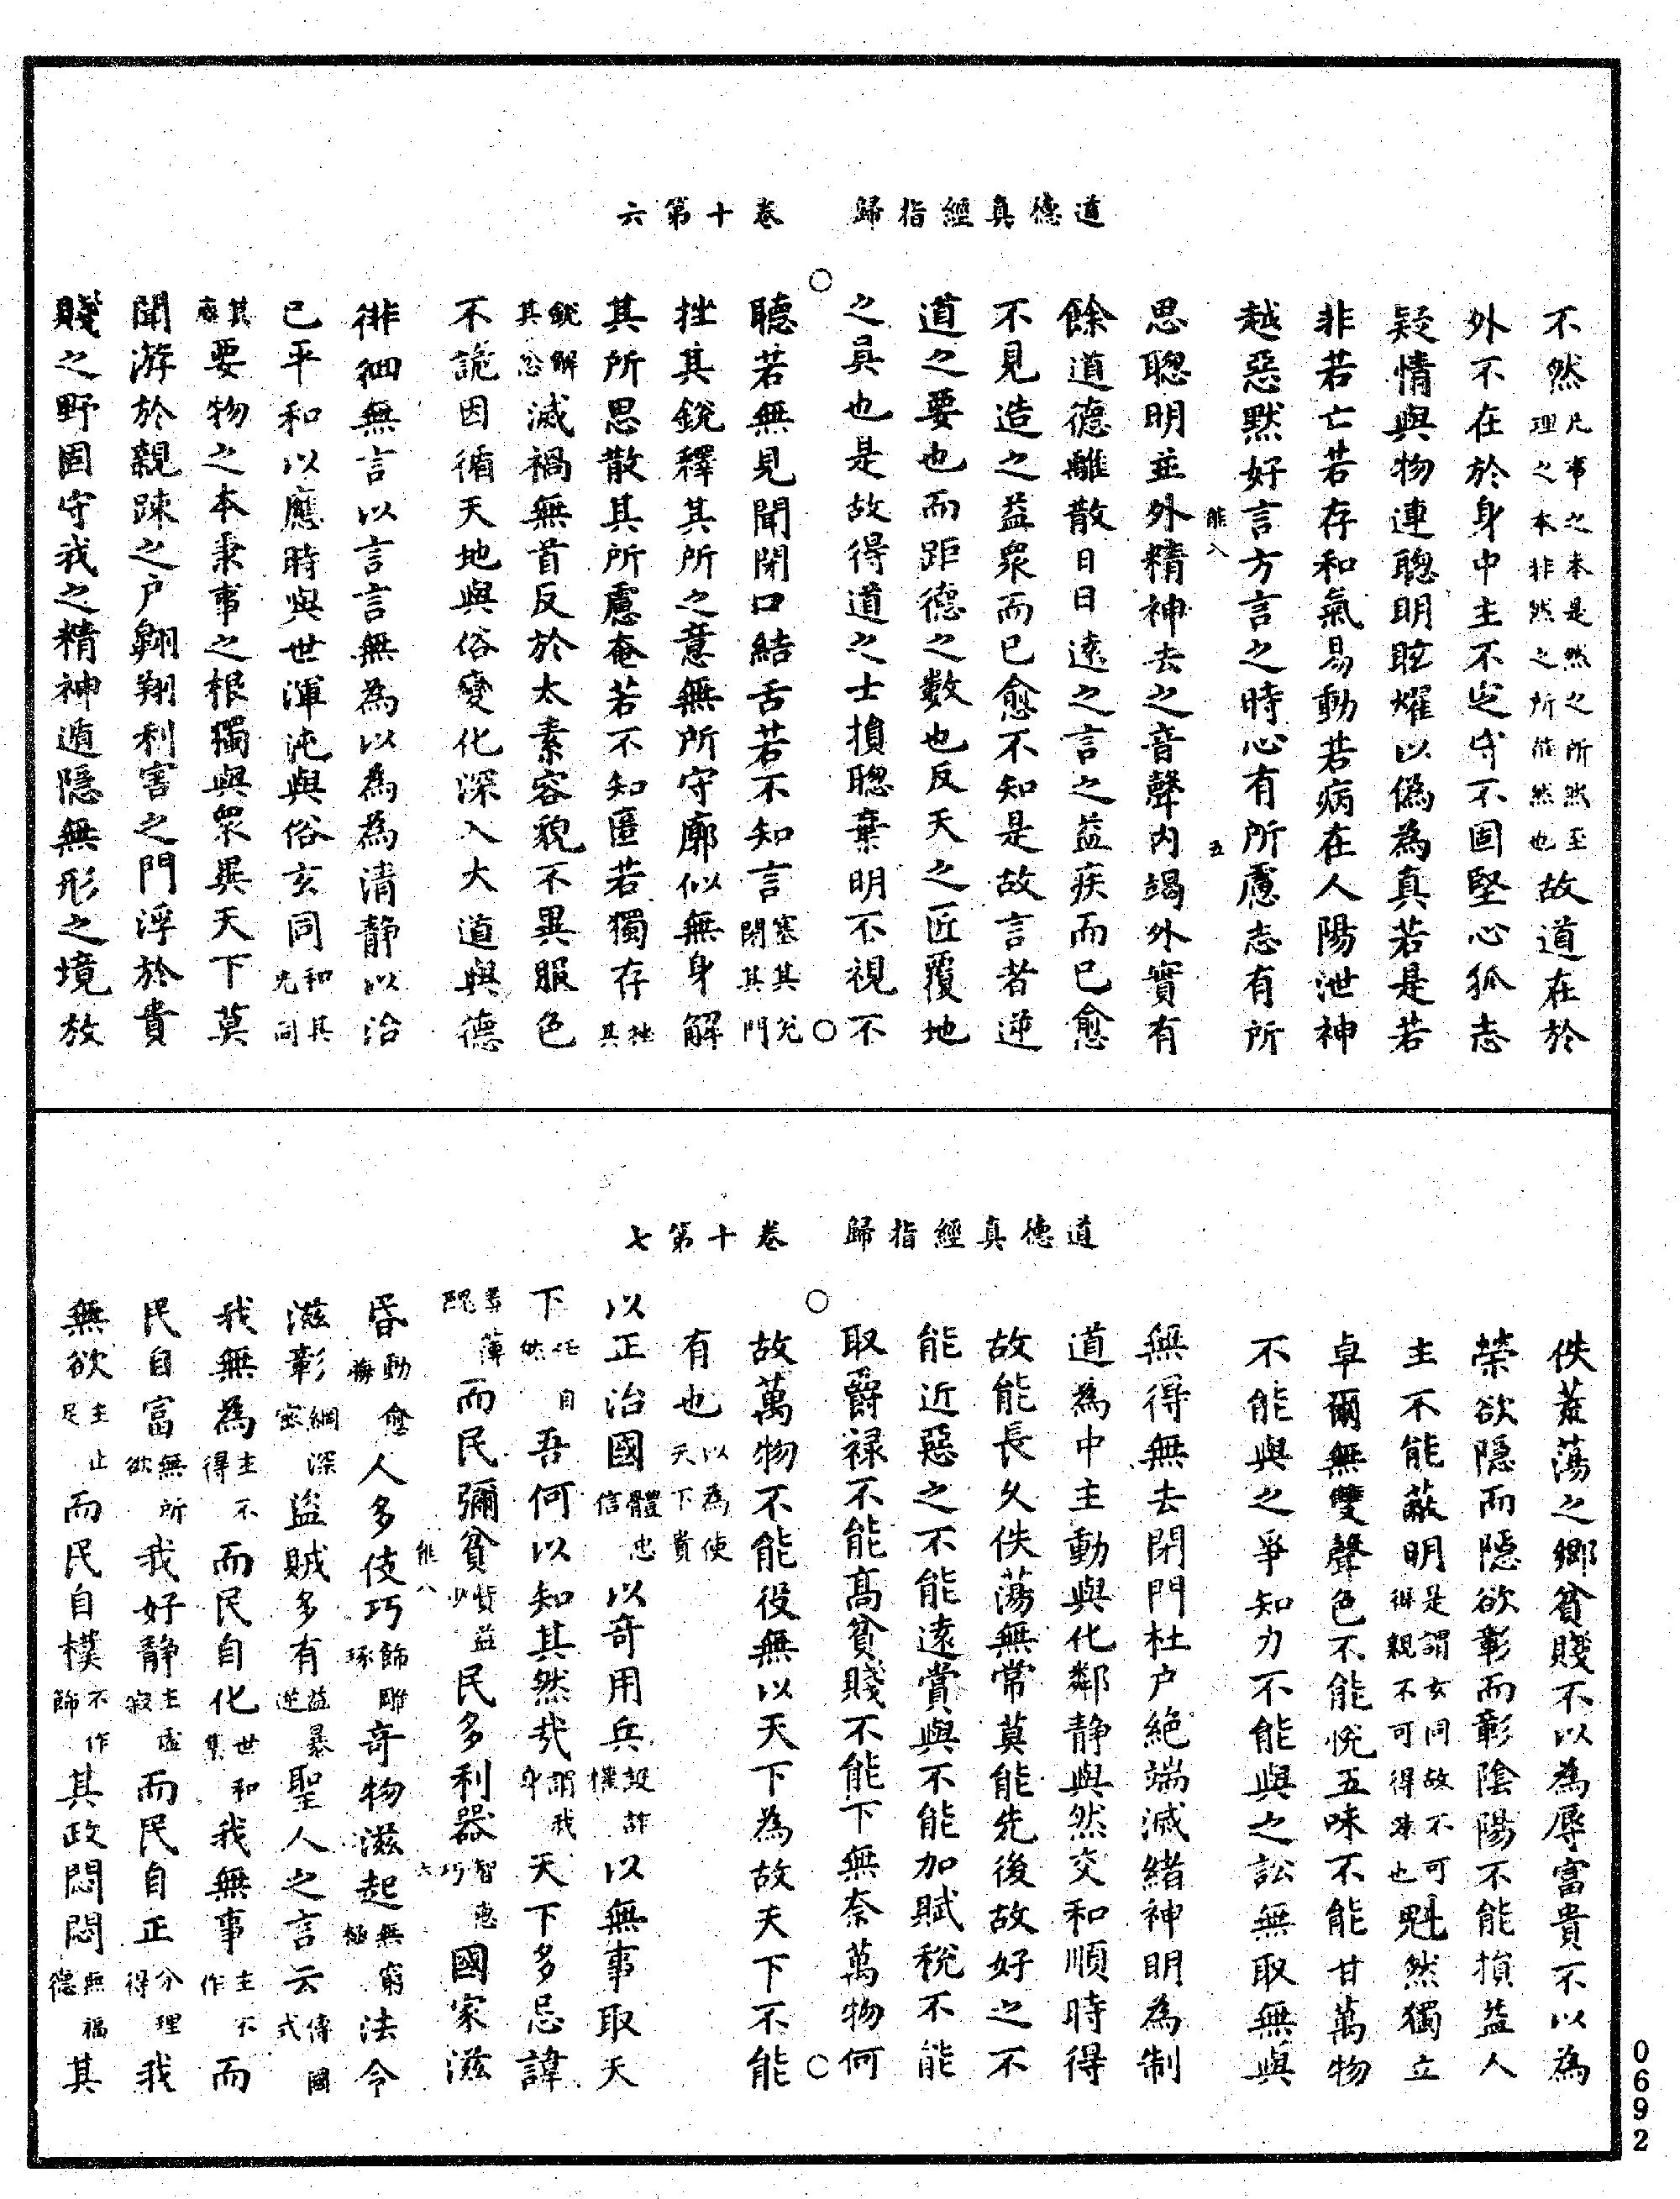 道德真經指歸　卷十第六
不然凡事之本是然之所然至理之本非然之所能然也故道在於
外不在於身中主不定守不固堅心狐志
疑情與物連聰明眩燿以偽為真若是若
非若亡若存和氣易動若病在人陽泄神
越惡默好言方言之時心有所慮志有所
能八　五
思聰明並外精神去之音聲內竭外實有
餘道德離散日日遠之言之益疾而已愈
不見造之益眾而已愈不知是故言者逆
道之要也而距德之數也反天之匠覆地
之具也是故得道之士損聰棄明不視不
聽若無見聞閉口結舌若不知言塞其兌閉其門
挫其銳釋其所之意無所守廓似無身解
其所思散其所慮奄若不知匿若獨存挫其
銳解其忿滅禍無首反於太素容貌不異服色
不詭因循天地與俗變化深入大道與德
徘徊無言以言言無為以為為清靜以治
已平和以應時與世渾沌與俗玄同和其光同
其塵要物之本秉事之根獨與眾異天下莫
聞游於親踈之户翱翔利害之門浮於貴
賤之野固守我之精神遁隱無形之境放
道德真經指歸　卷十第七
佚荒蕩之鄉貧賤不以為辱富貴不以為
榮欲隱而隱欲彰而彰陰陽不能損益人
主不能蔽明是謂玄同故不可得親不可得疎也魁然獨立
卓爾無雙聲色不能悅五味不能甘萬物
不能與之爭知力不能與之訟無取無與
無得無去閉門杜户絕端滅緒神明為制
道為中主動與化鄰靜與然交和順時得
故能長久佚蕩無常莫能先後故好之不
能近惡之不能遠賞與不能加賦稅不能
取爵祿不能高貧賤不能下無奈萬物何
故萬物不能役無以天下為故天下不能
有也以為使天下貴
以正治國體忠信以奇用兵設詐樸以無事取天
下任自然吾何以知其然哉謂我身天下多忌諱
而民彌貧貨益少民多利器智惠巧國家滋
能八　六
昏動愈人多伎巧飾雕琢奇物滋起無窮極法令
滋彰網深密盜賊多有益暴逆聖人之言云傳國式
我無為主不得而民自化世和集我無事主不作而
民自富無所欲我好靜主虛寂而民自正分理得我
無欲主止足而民自樸不作飾其政悶悶無福德其
0692